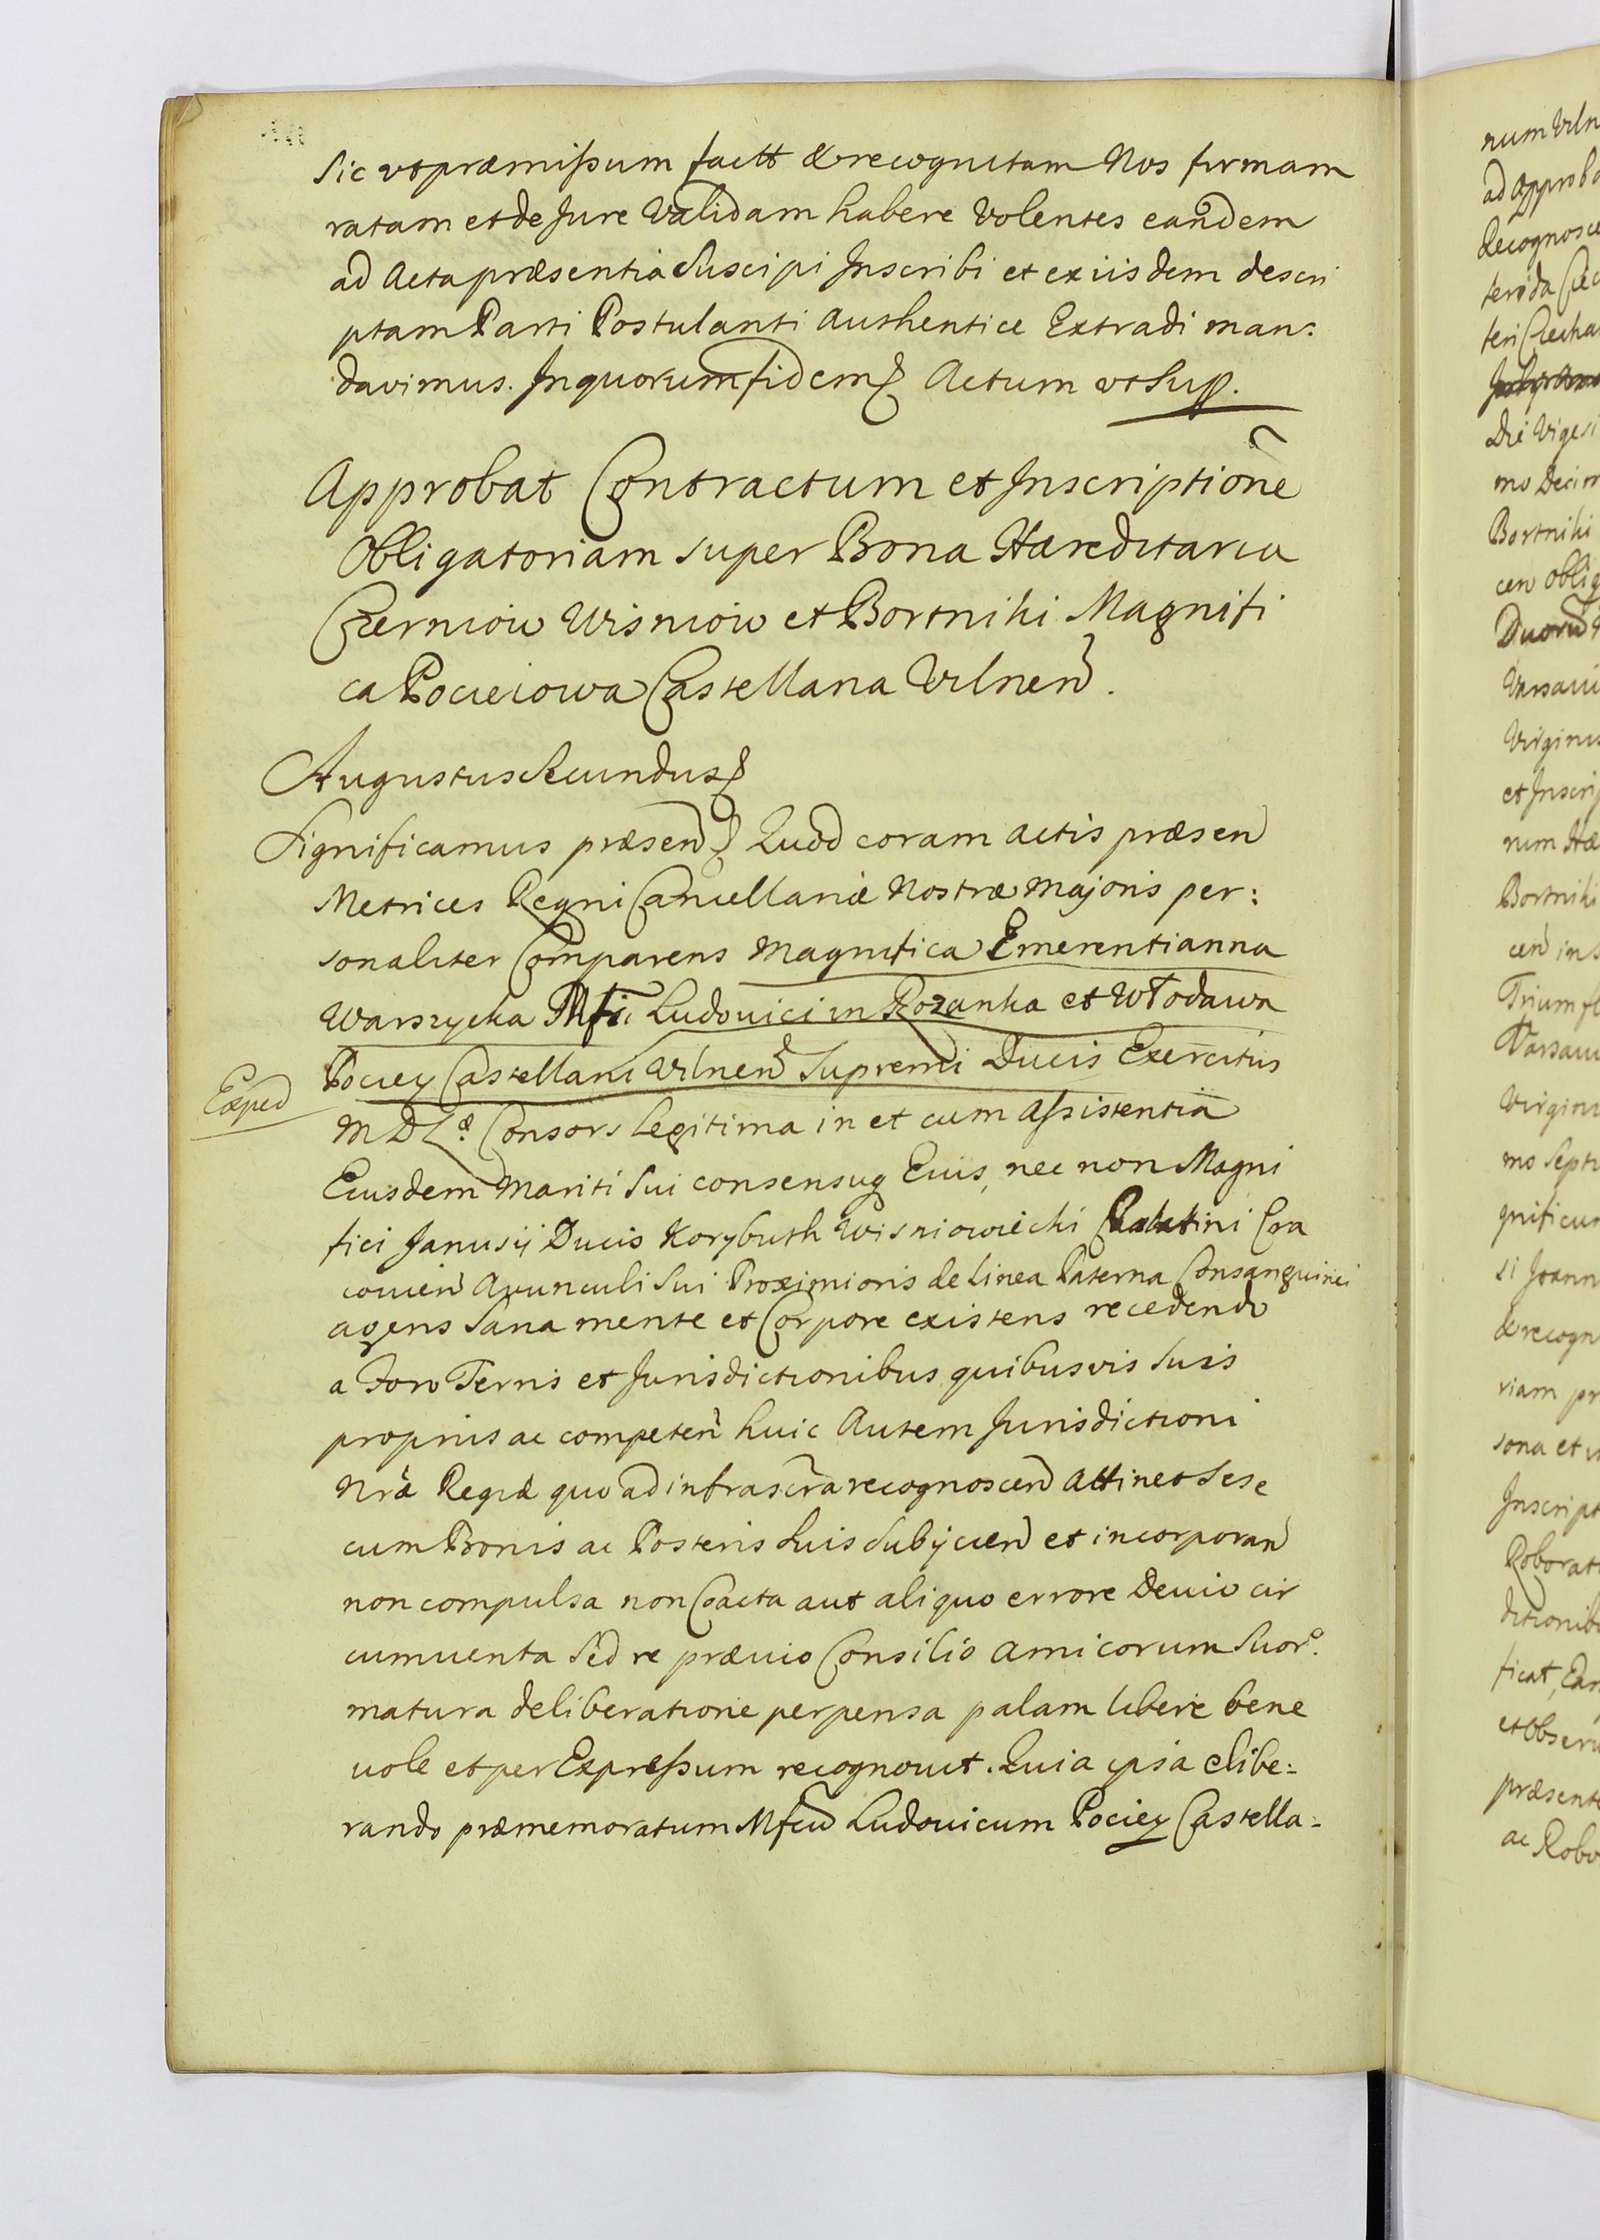 Sic ut præmissum factt & recognitam Nos firmam
ratam et de Jure Validam habere Volentes eandem
ad Acta præsentia Suscipi Inscribi et ex iisdem descri
ptam Parti Postulanti Authentice Extradi man:
davimus. In quorum fidem Actum ut Sup.
Approbat Contractum et Inscriptione
Obligatoriam super Bona Hæreditaria
Czerniow Wisniow et Bortniki Magnifi
ca Pocieiowa Castellana Vilnen.
Augustus Secundus
Significamus præsen Quod coram actis præsen
Metrices Regni Cancellariæ Nostræ Majoris per:
sonaliter Comparens Magnifica Emerentianna
Warszycka Mfci Ludovici in Rozanka et Włodawa
Pociey Castellani Vilnen Supremi Ducis Exercitus
Exped
M D L Consors Legitima in et cum Assistentia
Eiusdem Mariti Sui consensuq Eius, nec non Magni
fici Janusij Ducis Korybuth Wisniowiecki Palatini Cra
covien Avunculi Sui Proximioris de linea Paterna Consanguinei
agens Sana mente et Corpore existens recedendo
a Foro Terris et Jurisdictionibus quibusvis Suis
proprius ac competen huic Autem Jurisdictioni
Nræ Regiæ quo ad infrascra recognoscen Attinet Sese
cum Bonis ac Posteris Suis Subijcien et incorporan
non compulsa non Coacta aut aliquo errore Devio cir
cumuenta Sed re præuio Consilio Amicorum Suor.
matura deliberatione perpensa palam libere bene
uole et per Expressum recognouit. Quia ipsa elibe:
rando præmemoratum Mfcu Ludouicum Pociey Castella: